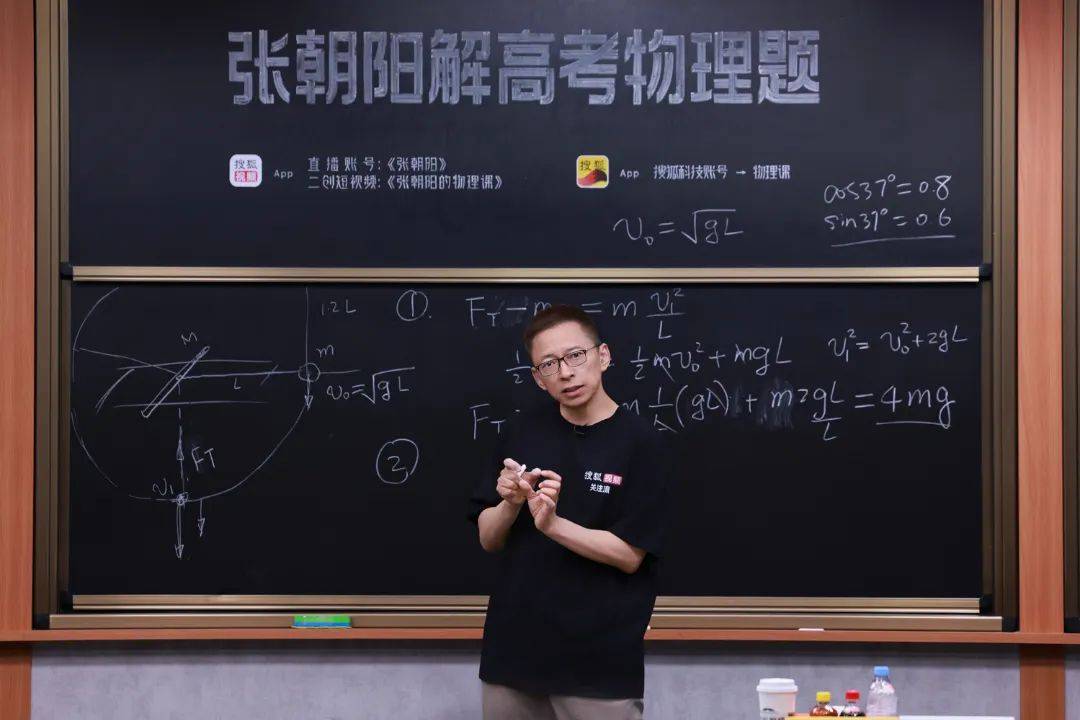 张朝阳解高考物理题
搜狐
视频
App
直播账号:《张朝阳》
二创短视频:《张朝阳的物理课》
搜狐
App
搜狐科技账号 → 物理课
cos37°=0.8
sin37°=0.6
v₀=√gL
1.2L
M
m
L
v₀=√gL
FT
v₁
①.
F_T - m = m v₁²/L
½ ½mv₀²+mgL
v₁²=v₀²+2gL
F_T (gL) + m 2gL/L = 4mg
②
搜狐 视频
关注流